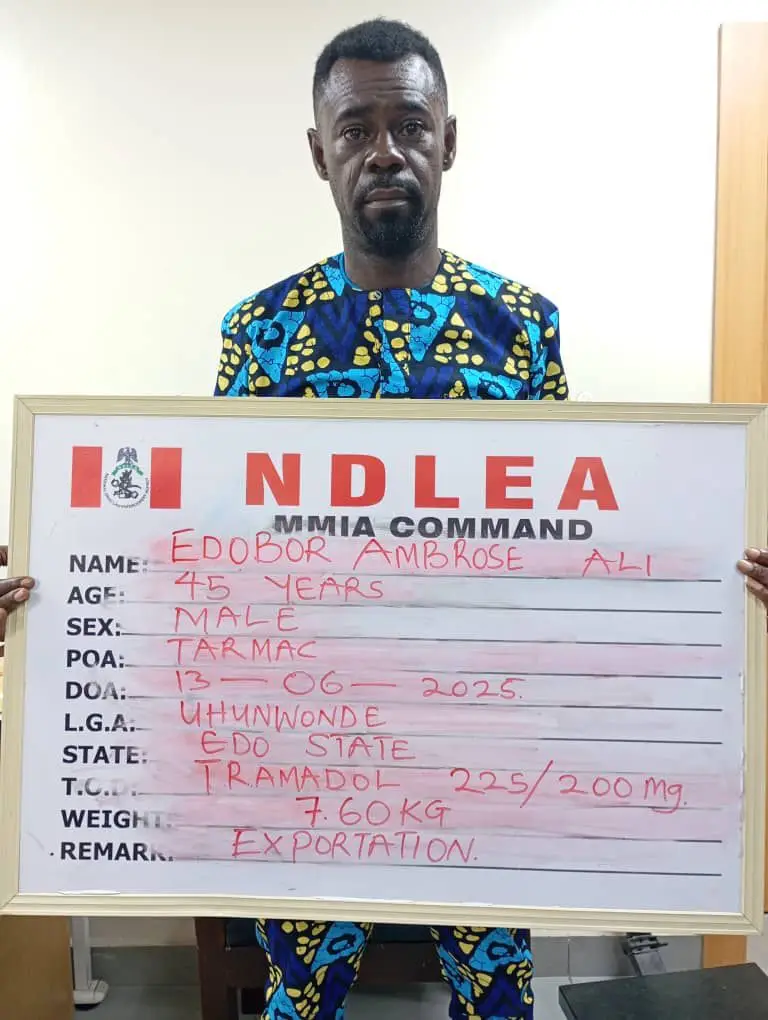 NDLEA
MMIA COMMAND
NAME: EDOBOR AMBROSE ALI
AGE: 45 YEARS
SEX: MALE
POA: TARMAC
DOA: 13-06-2025.
L.G.A: UHUNWONDE
STATE: EDO STATE
T.O.D: TRAMADOL 225/200mg.
WEIGHT: 7.60KG
REMARK: EXPORTATION.